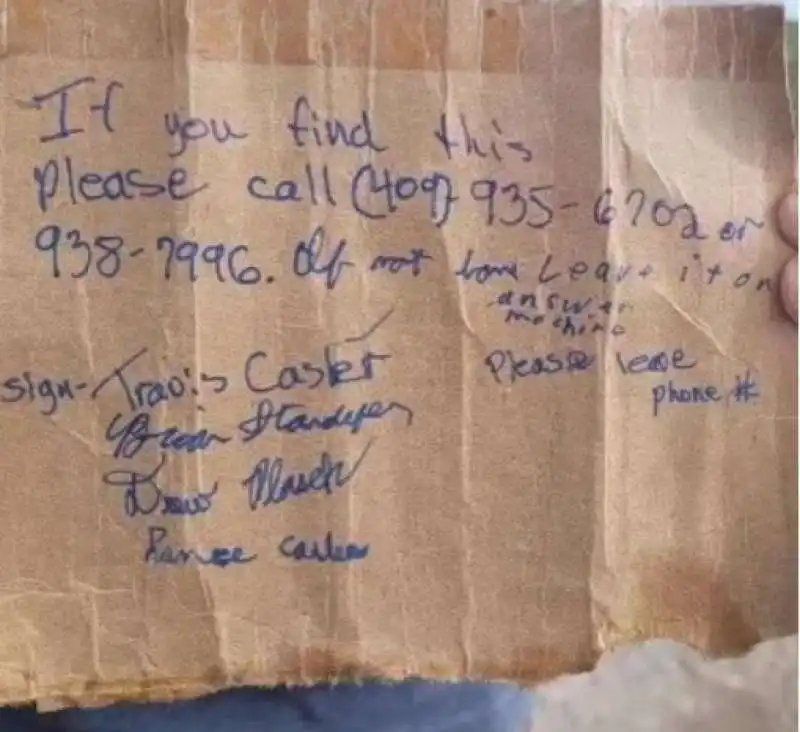 If you find this
please call (409) 935-6702 or
938-7996. If not home Leave it on
answer
machine
Please leave
phone #
sign- Travis Casler
Brian
Drew